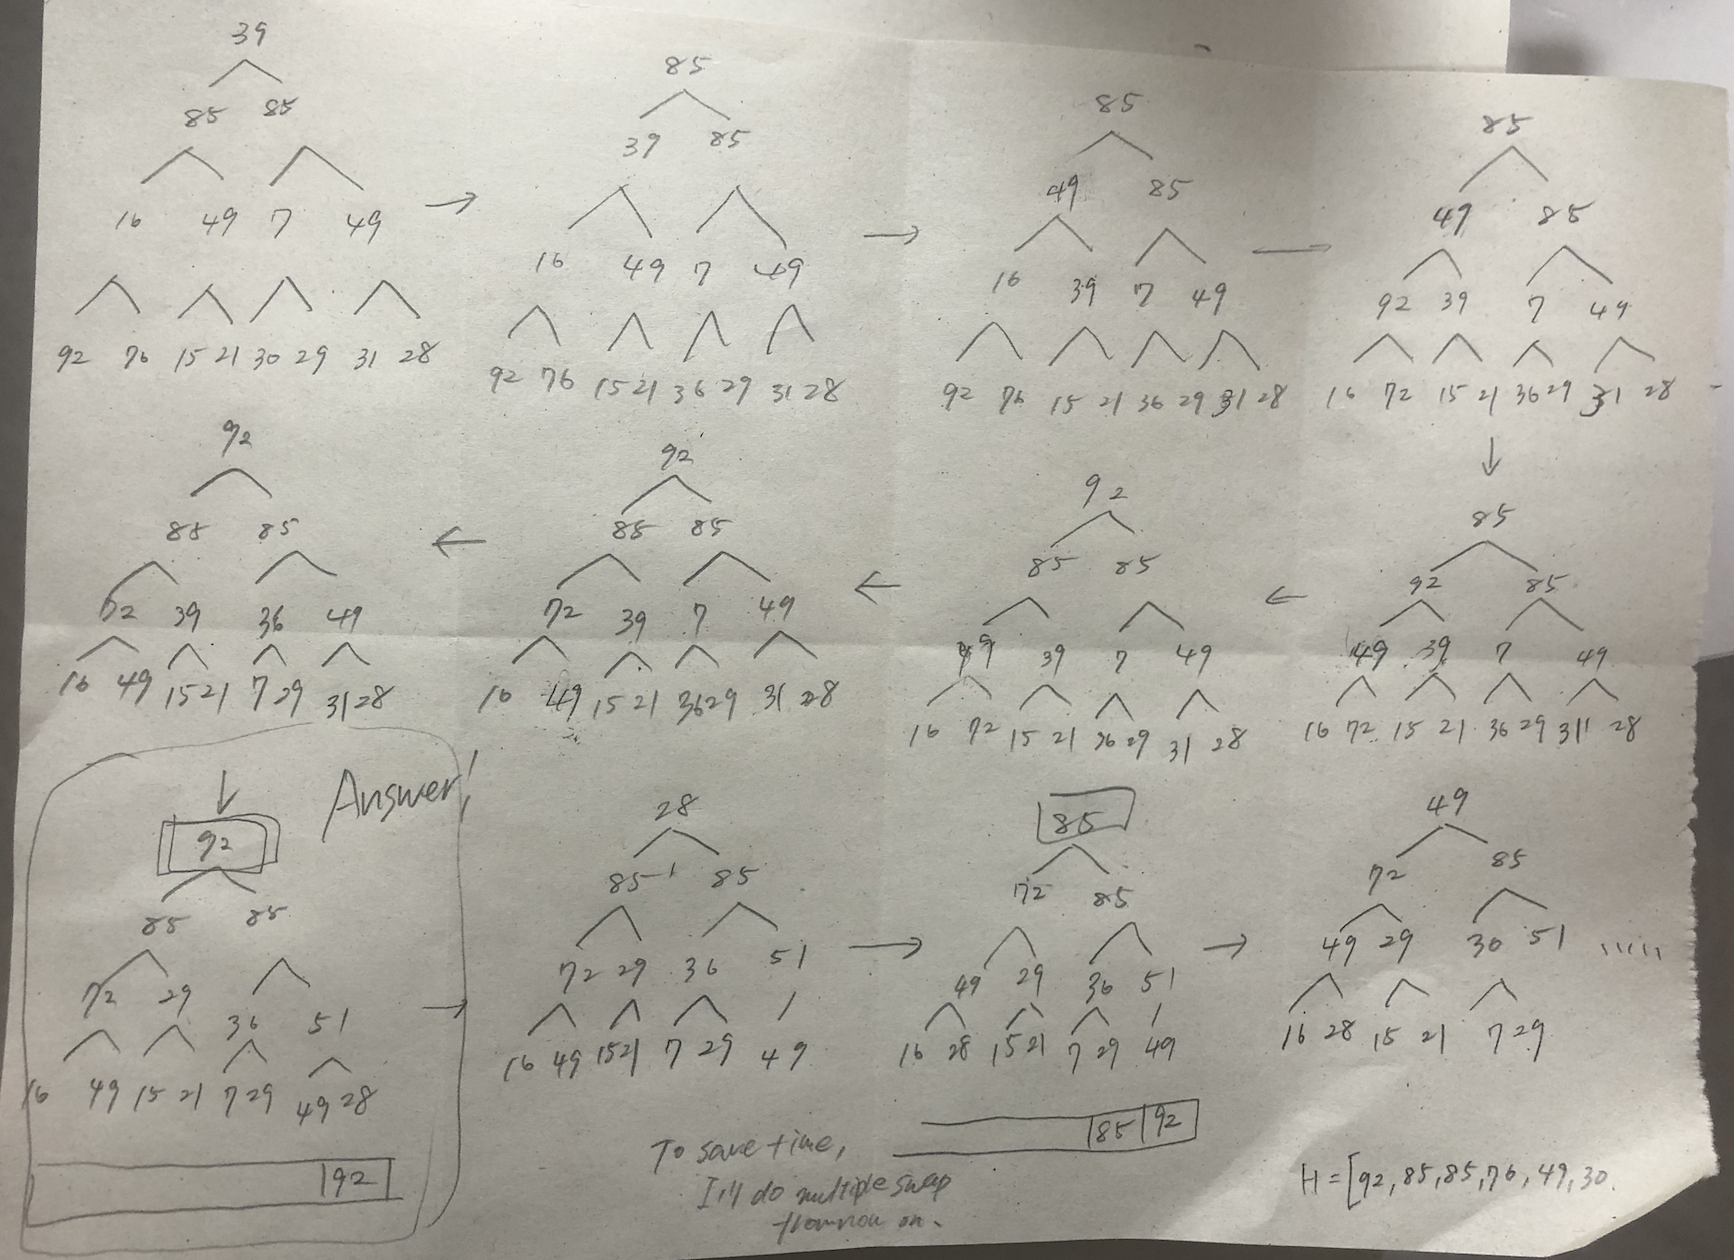 39
85 85
16 49 7 49
92 76 15 21 30 29 31 28
→
85
39 85
16 49 7 49
92 76 15 21 36 29 31 28
→
85
49 85
16 39 7 49
92 76 15 21 36 29 31 28
→
85
49 85
92 39 7 49
16 72 15 21 36 29 31 28
↓
85
92 85
49 39 7 49
16 72 15 21 36 29 31 28
←
92
85 85
49 39 7 49
16 72 15 21 36 29 31 28
←
92
85 85
72 39 7 49
16 49 15 21 36 29 31 28
←
92
85 85
72 39 36 49
16 49 15 21 7 29 31 28
↓
Answer!
92
85 85
72 29 36 51
16 49 15 21 7 29 49 28
92
→
28
85 85
72 29 36 51
16 49 15 21 7 29 49
→
85
72 85
49 29 36 51
16 28 15 21 7 29 49
85 92
→
49
72 85
49 29 36 51
16 28 15 21 7 29
To save time,
I'll do multiple swap
from now on.
H = [92, 85, 85, 76, 49, 30.